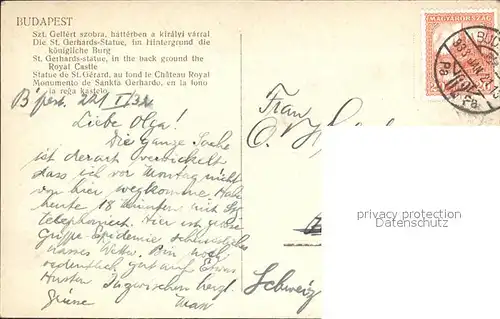 BUDAPEST
Szt. Gellért szobra, háttérben a királyi várral
Die St. Gerhards-Statue, im Hintergrund die
königliche Burg
St. Gerhards-statue, in the back ground the
Royal Castle
Statue de St. Gérard, au fond le Château Royal
Monumento de Sankta Gerhardo, en la fono
la rega kastelo
MAGYARORSZÁG
Liebe Olga!
Die ganze Sache
ist derart verwickelt
dass ich vor Montag nicht
von hier wegkomme. Habe
heute 18 Minuten mit
telephoniert. Hier ist grosse
Grippe-Epidemie
nasses Wetter. Bin noch
auf
Husten. Inzwischen herzl.
Grüsse Max
Frau
O.
Schweiz
privacy protection
Datenschutz